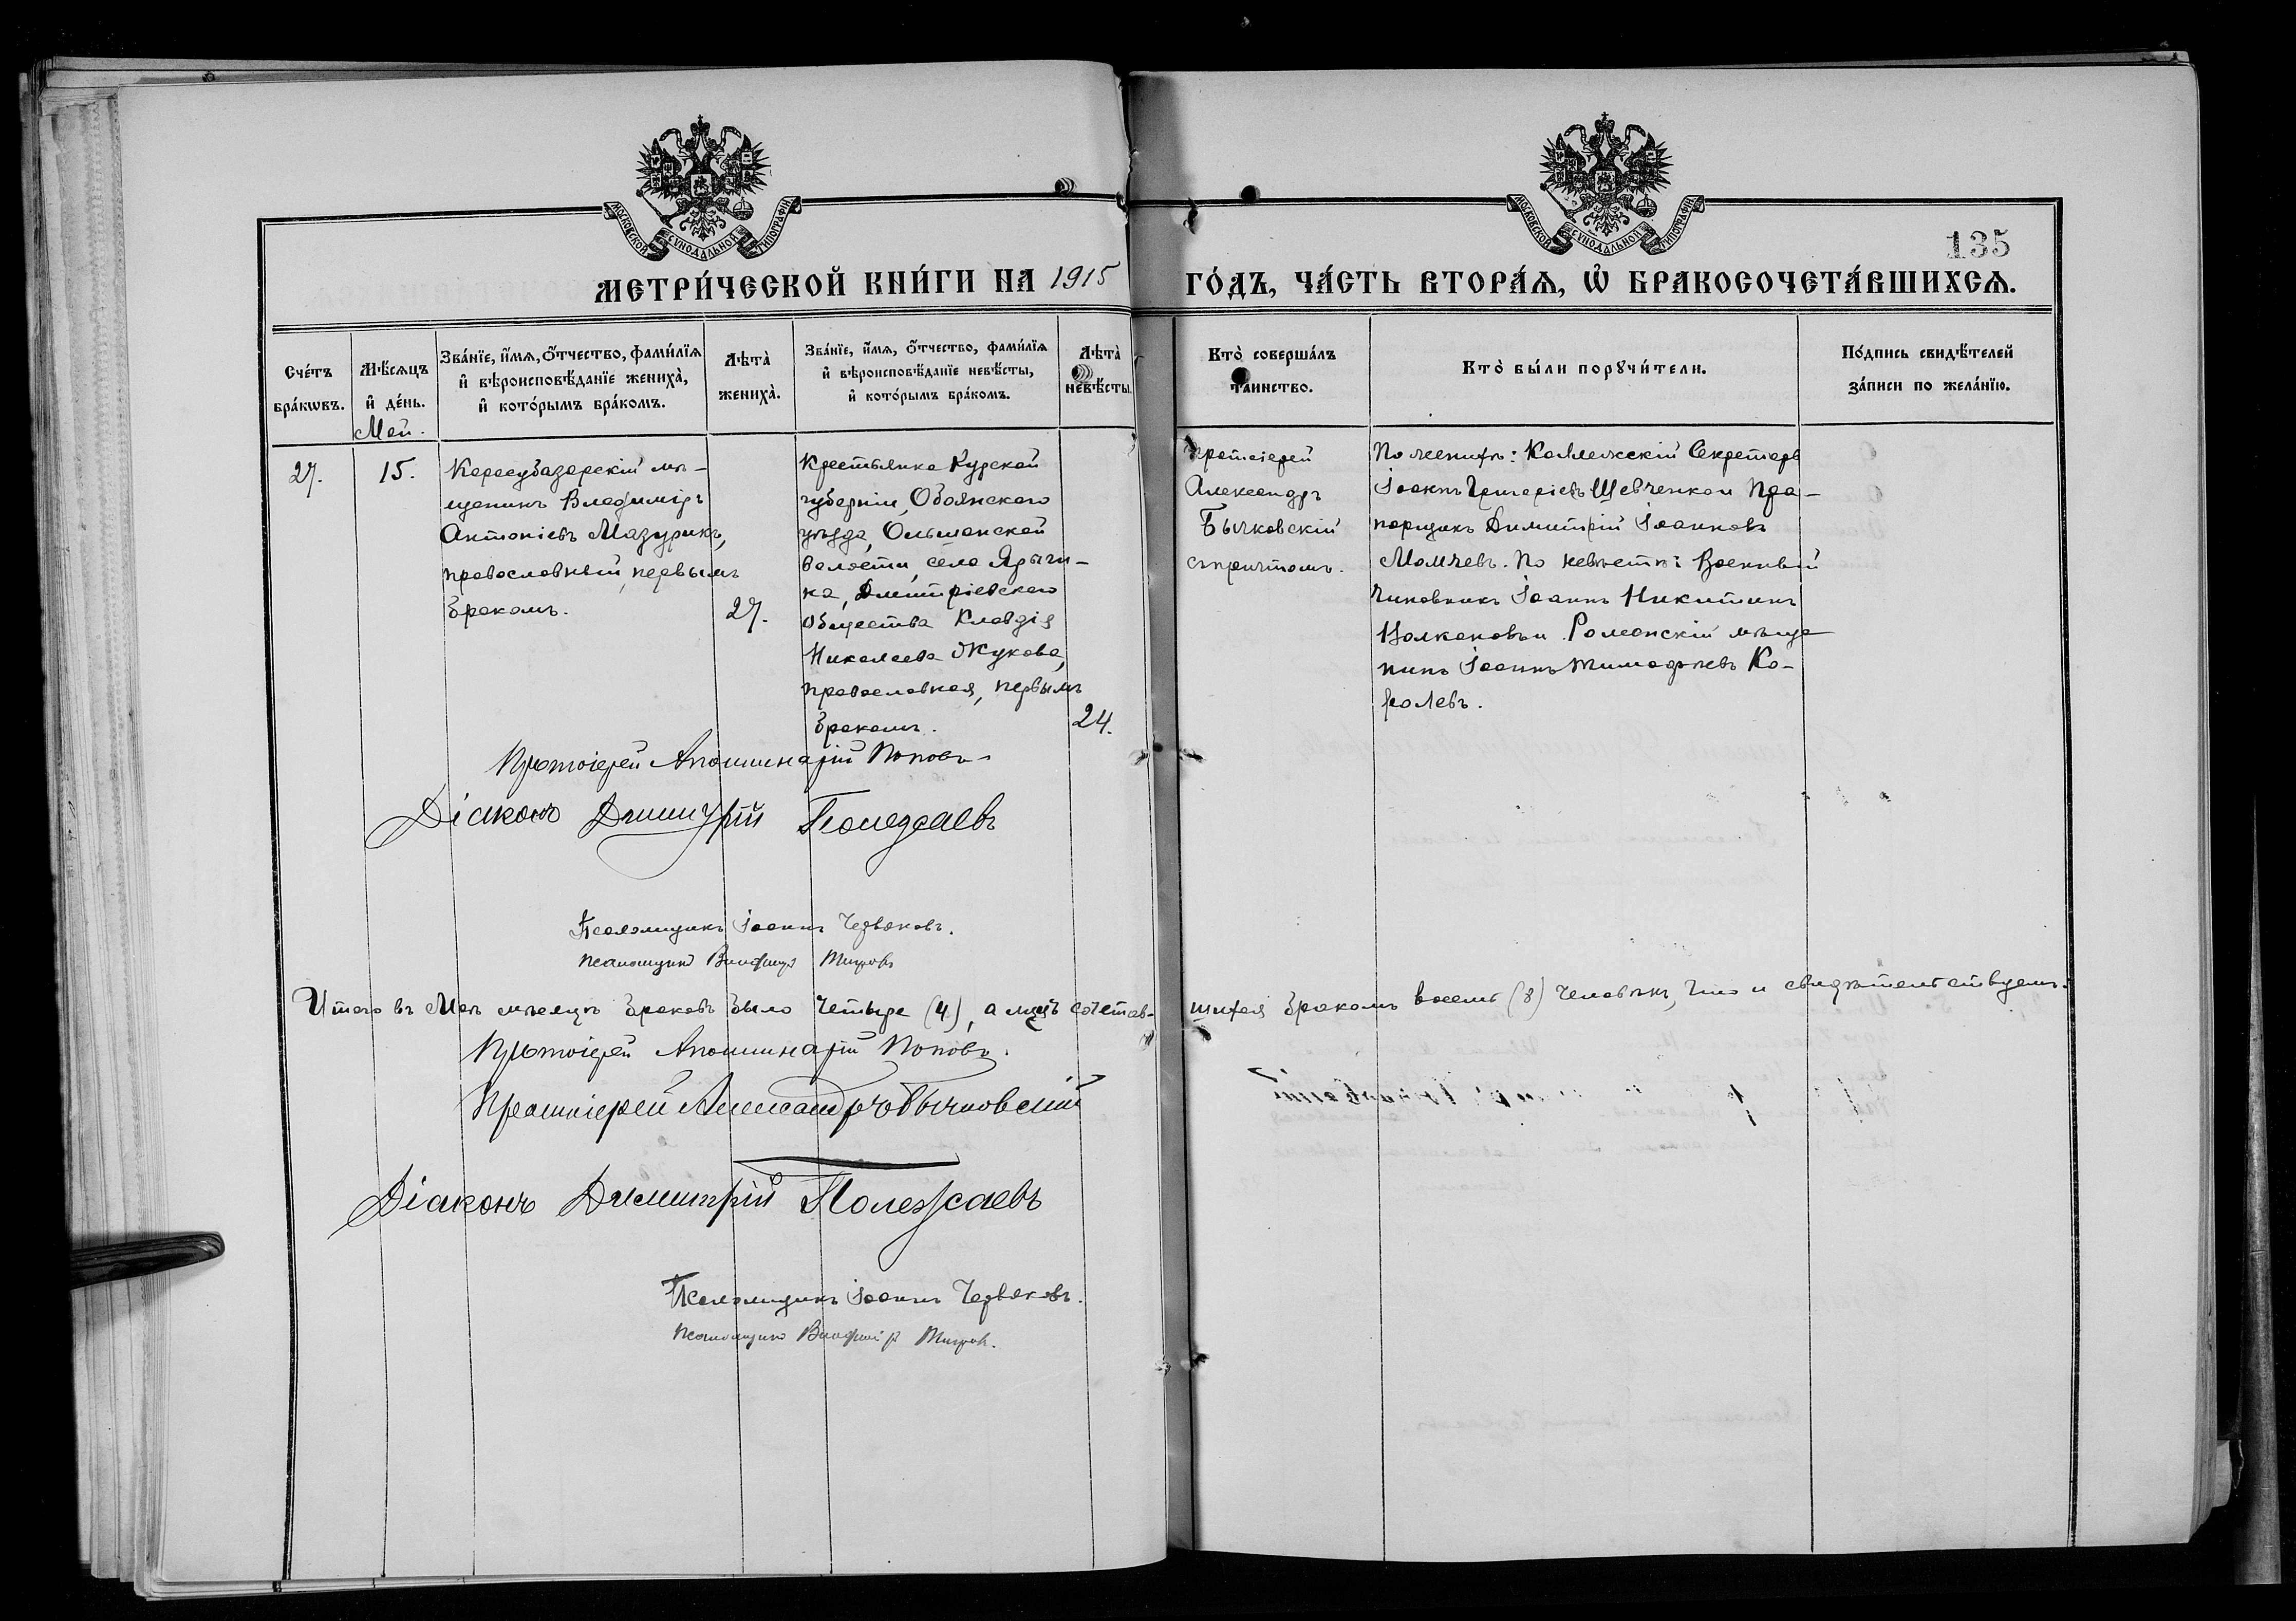 МОСКОВСКОЙ СѴНОДАЛЬНОЙ ТИПОГРАФІИ
МОСКОВСКОЙ СѴНОДАЛЬНОЙ ТИПОГРАФІИ
135
МЕТРИ́ЧЕСКОЙ КНИ́ГИ НА 1915 ГО́ДЪ, ЧА́СТЬ ВТОРА́Ѧ, Ѡ҆ БРАКОСОЧЕТА́ВШИХСѦ.
Сче́тъ
бра́кωвъ.
Мѣ́сѧцъ
и҆ де́нь.
Зва́нїе, и҆́мѧ, ѻ҆́тчество, фами́лїѧ
и҆ вѣроисповѣ́данїе жениха̀,
и҆ кото́рымъ бра́комъ.
Лѣта̀
жениха̀.
Зва́нїе, и҆́мѧ, ѻ҆́тчество, фами́лїѧ
и҆ вѣроисповѣ́данїе невѣ́сты,
и҆ кото́рымъ бра́комъ.
Лѣта̀
невѣ́сты.
Кто̀ соверша́лъ
та́инство.
Кто̀ бы́ли порꙋчи́тели.
По́дпись свидѣ́телей
за́писи по жела́нїю.
Май.
27.
15.
Карасубазарскій мѣ-
щанинъ Владиміръ
Антоніевъ Мазуринъ,
православный, первымъ
бракомъ.
27.
Крестьянка Курской
губерніи, Обоянскаго
уѣзда, Ольшанской
волости, села Ярыги-
на, Дмитріевскаго
общества Клавдія
Николаева Жукова,
православная, первымъ
бракомъ.
24.
Протоіерей
Александръ
Бычковскій
съ причтомъ.
По женихѣ: Коллежскій Секретарь
Іоаннъ Григоріевъ Шевченко и Пра-
порщикъ Димитрій Іоанновъ
Момчевъ. По невѣстѣ: Военный
чиновникъ Іоаннъ Никитинъ
Цолкановъ и Роменскій мѣща
нинъ Іоаннъ Тимофѣевъ Ко-
ролевъ.
Протоіерей Аполлинарій Поповъ
Діаконъ Димитрій Полежаевъ
Псаломщикъ Іоаннъ Червяковъ.
Псаломщикъ Владиміръ
Итого въ Маѣ мѣсяцѣ браковъ было четыре (4), а лицъ сочетав-
шихся бракомъ восемь (8) человѣкъ, что и свидѣтельствуемъ.
Протоіерей Аполлинарій Поповъ.
Протоіерей Александръ Бычковскій
Діаконъ Димитрій Полежаевъ
Псаломщикъ Іоаннъ Червяковъ.
Псаломщикъ Владиміръ